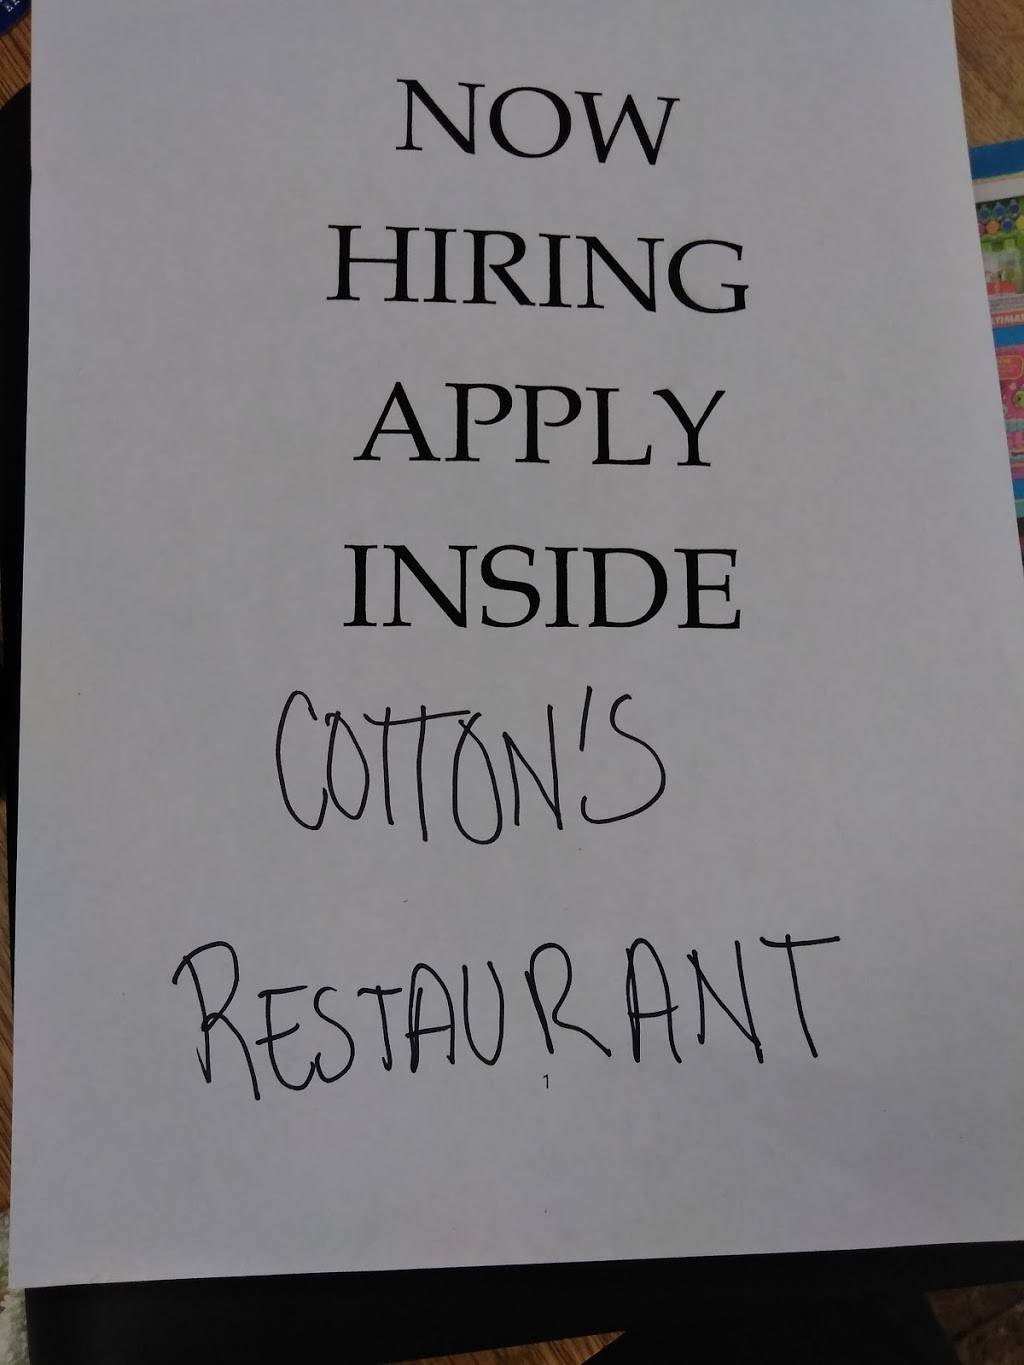 NOW
HIRING
APPLY
INSIDE
COTTON'S
RESTAURANT
1